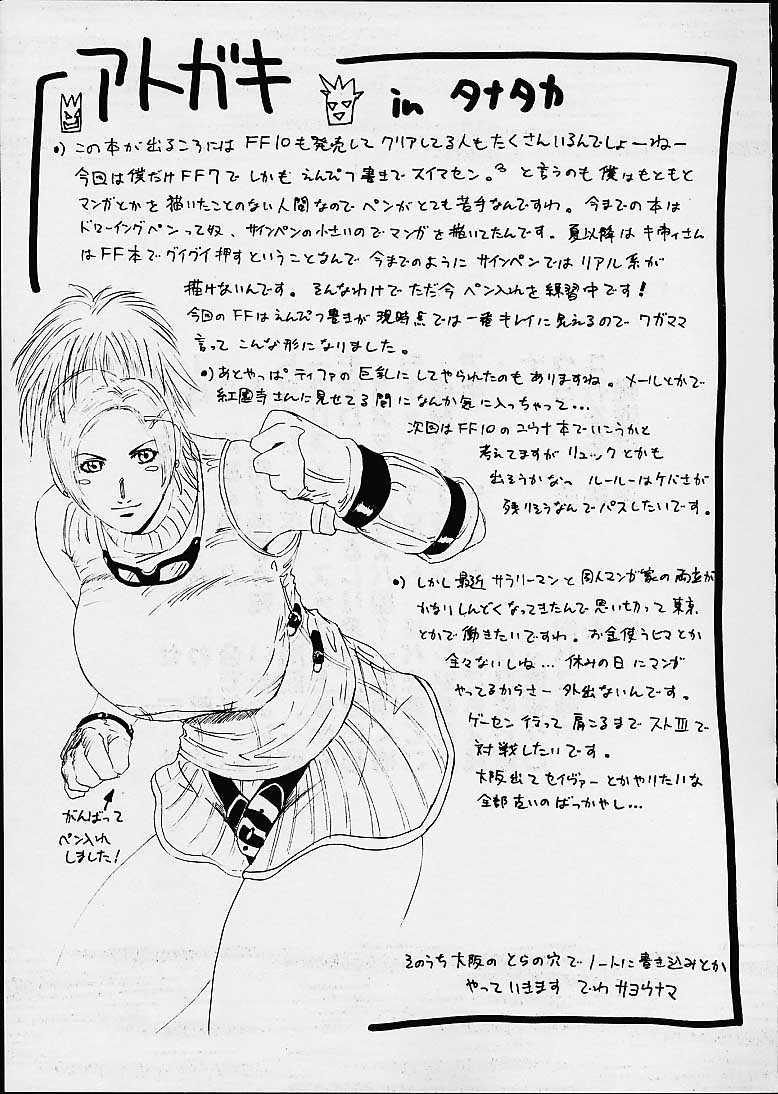 アトガキ
in タナタカ
•) この本が出るころには FF10も発売して クリアしてる人もたくさんいるんでしょーねー
今回は僕だけFF7で しかも えんぴつ書きでスイマセン。 と言うのも 僕はもともと
マンガとかを 描いたことのない人間なので ペンがとても苦手なんですわ。今までの本は
ドローイングペンって奴、サインペンの小さいので マンガを描いてたんです。夏以降は
はFF本でグイグイ押すということなんで 今までのように サインペンではリアル系が
描けないんです。 そんなわけで ただ今 ペン入れを練習中です!
今回のFFはえんぴつ書きが 現時点では一番キレイに見えるので ワガママ
言って こんな形になりました。
•) あとやっぱ ティファの巨乳に してやられたのも ありますね。メールとかで
さんに見せてる間に なんか気に入っちゃって…
次回はFF10のユウナ本でいこうかと
考えてますが リュックとかも
出そうかなっ ルールーはケバさが
残りそうなんでパスしたいです。
•) しかし 最近 サラリーマンと同人マンガ家の両立が
かなりしんどくなってきたんで思い切って東京
とかで働きたいですわ。お金使うヒマとか
全々ないしね… 休みの日にマンガ
やってるからさー 外出ないんです。
ゲーセン行って肩こるまで ストⅢで
対戦したいです。
大阪出て セイヴァーとかやりたいな
全部古いのばっかやし…
がんばって
ペン入れ
しました!
そのうち大阪の とらの穴で ノートに書き込みとか
やって いきます でわ サヨウナマ